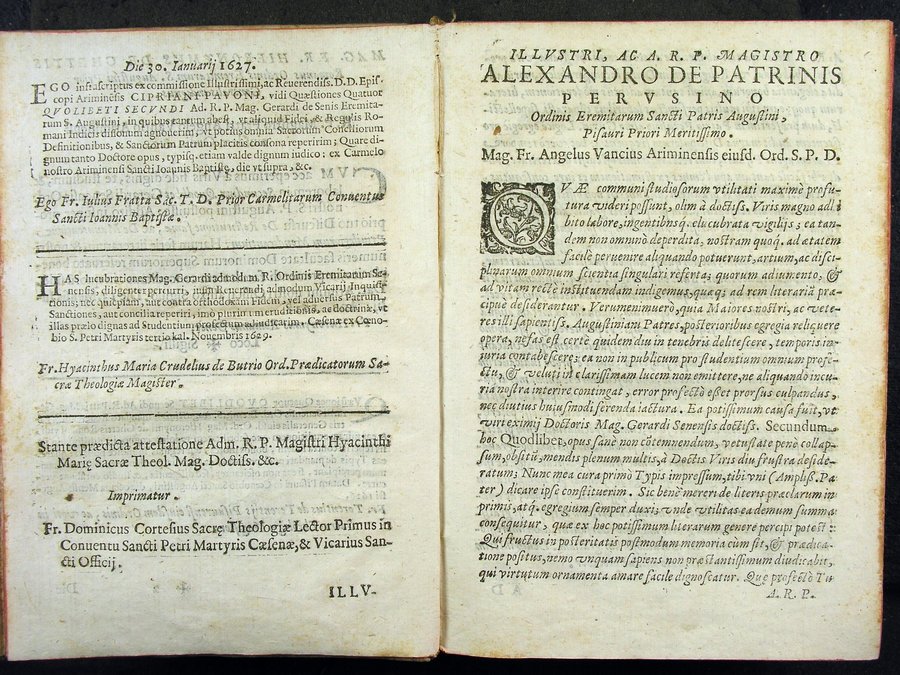 Die 30. Ianuarij 1627.
EGO infrascriptus ex commissione Illustrissimi, ac Reuerendiss. D.D. Epis-
copi Ariminẽsis CIPRIANI PAVONI, vidi Quæstiones Quatuor
QVOLIBETI SECVNDI Ad. R. P. Mag. Gerardi de Senis Eremita-
rum S. Augustini, in quibus tantum abest, vt aliquid Fidei, & Regulis Ro-
mani Indicis dissonum agnouerim, vt potius omnia Sacrorum Consessiorum
Definitionibus, & Sanctorum Patrum placitis consona repererim; Quare di-
gnum tanto Doctore opus, typisq. etiam valde dignum iudico: ex Carmelo
nostro Ariminensi Sancti Ioannis Baptistę, die vt supra, &c.
Ego Fr. Iulius Fratta Sac. T. D. Prior Carmelitarum Conuentus
Sancti Ioannis Baptistæ.
HAS lucubrationes Mag. Gerardi admodum R. Ordinis Eremitarum Se-
nensis, diligenter percurri, iussu Reuerendi admodum Vicarij Inquisi-
tionis; nec quicpiam, aut contra orthodoxam Fidem, vel aduersus Patrum
Sanctiones, aut concilia reperiri, imo plurimum eruditionis, ac doctrinæ, vt
illas prælo dignas ad Studentium profectum adiudicarim. Cæsenæ ex Cœno-
bio S. Petri Martyris tertio kal. Nouembris 1629.
Fr. Hyacinthus Maria Crudelius de Butrio Ord. Prædicatorum Sa-
cræ Theologiæ Magister.
Stante prædicta attestatione Adm. R. P. Magistri Hyacinthi
Marię Sacræ Theol. Mag. Doctiss. &c.
Imprimatur.
Fr. Dominicus Cortesius Sacrę Theologiæ Lector Primus in
Conuentu Sancti Petri Martyris Cæsenæ, & Vicarius San-
cti Officij.
ILLV-
ILLVSTRI, AC A. R. P. MAGISTRO
ALEXANDRO DE PATRINIS
PERVSINO
Ordinis Eremitarum Sancti Patris Augustini,
Pisauri Priori Meritissimo.
Mag. Fr. Angelus Vancius Ariminensis eiusd. Ord. S. P. D.
QVÆ communi studiosorum vtilitati maximè profu-
tura videri possunt, olim à doctiss. Viris magno adl
bito labore, ingentibusq́. elucubrata vigilijs; ea tan-
dem non omninò deperdita, nostram quoq. ad ætatem
facilè peruenire aliquando potuerunt, artium, ac disci-
plinarum omnium scientia singulari referta; quorum adiumento, &
ad vitam rectè instituendam indigemus, quæq; ad rem literariã præ-
cipuè desiderantur. Verumenimuerò, quia Maiores nostri, ac vete-
res illi sapientiss. Augustiniani Patres, posterioribus egregia reliquere
opera, nefas est certè quidem diu in tenebris delitescere, temporis in-
iuria contabescere; ea non in publicum pro studentium omnium profe-
ctu, & veluti in clarissimam lucem non emittere, ne aliquando incu-
ria nostra interire contingat, error profectò esset prorsus culpandus,
nec diutius huiusmodi ferenda iactura. Ea potissimum causa fuit, vt
viri eximij Doctoris Mag. Gerardi Senensis doctiss. Secundum
hoc Quodlibet, opus sanè non cõtemnendum, vetustate penè collap-
sum, obsitũ, mendis plenum multis, à Doctis Viris diu frustra deside-
ratum; Nunc mea cura primò Typis impressum, tibi vni (Ampliss. Pa-
ter) dicare ipse constituerim. Sic benè mereri de literis præclarum in
primis, atq. egregium semper duxi, vnde vtilitas ea demum summa
consequitur, quæ ex hoc potissimum literarum genere percipi potest:
Qui fructus in posteritatis postmodum memoria cùm sit, & prædica-
tione positus, nemo vnquam sapiens non præstantissimum diudicabit,
qui virtutum ornamenta amare facile dignoscatur. Quę profectò Tu
A. R. P.